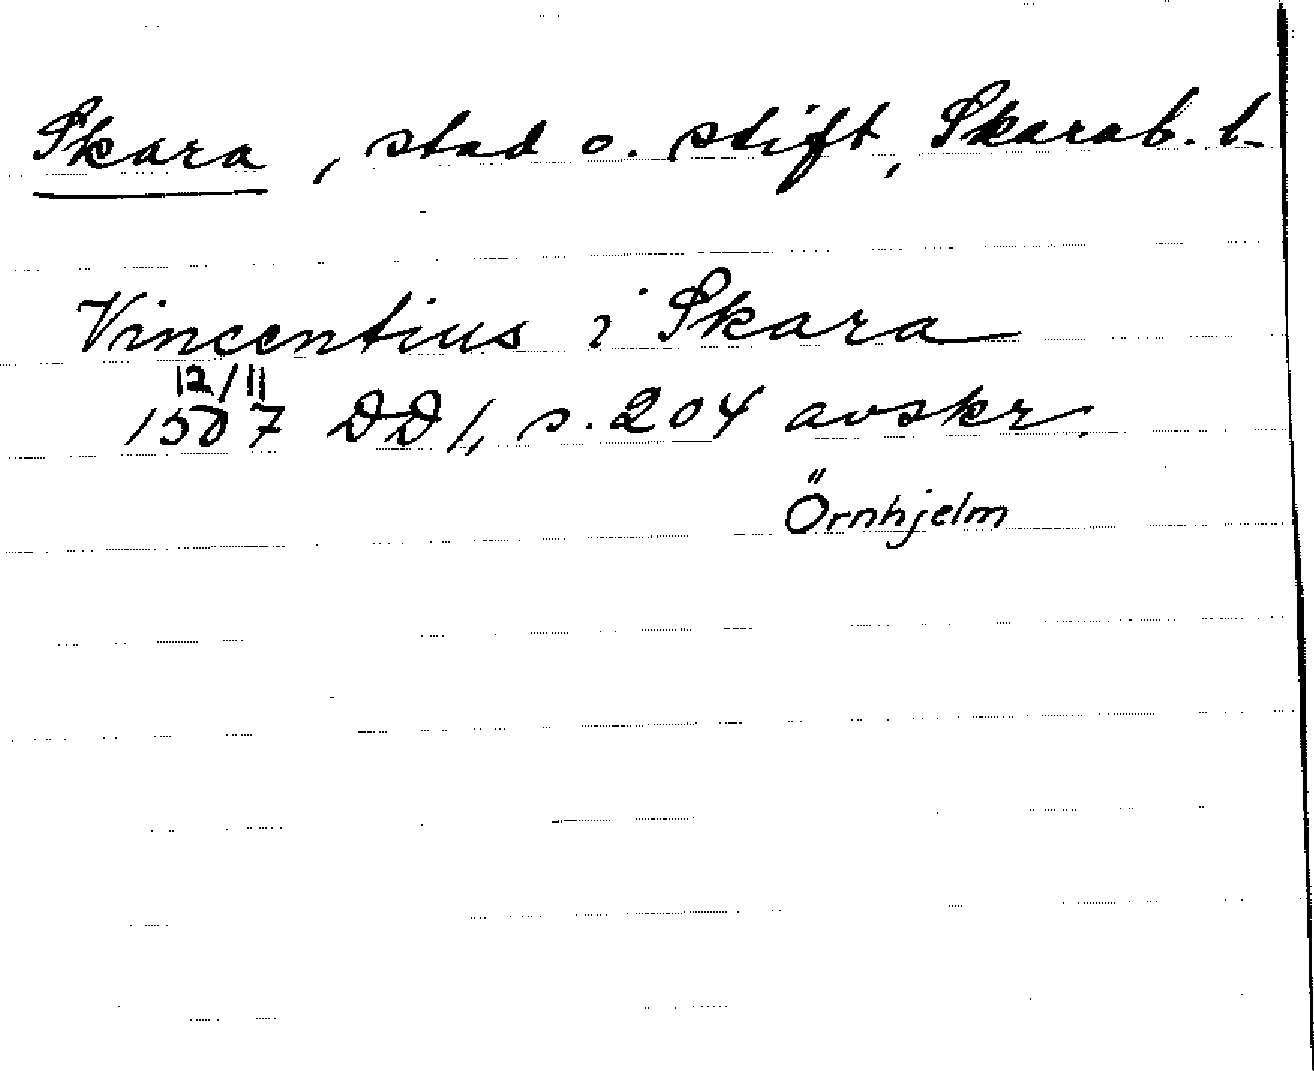 Skara, stad o. stift, Skarab. l.
Vincentius i Skara
12/11
1507 DD 1, s. 204 avskr.
Örnhjelm